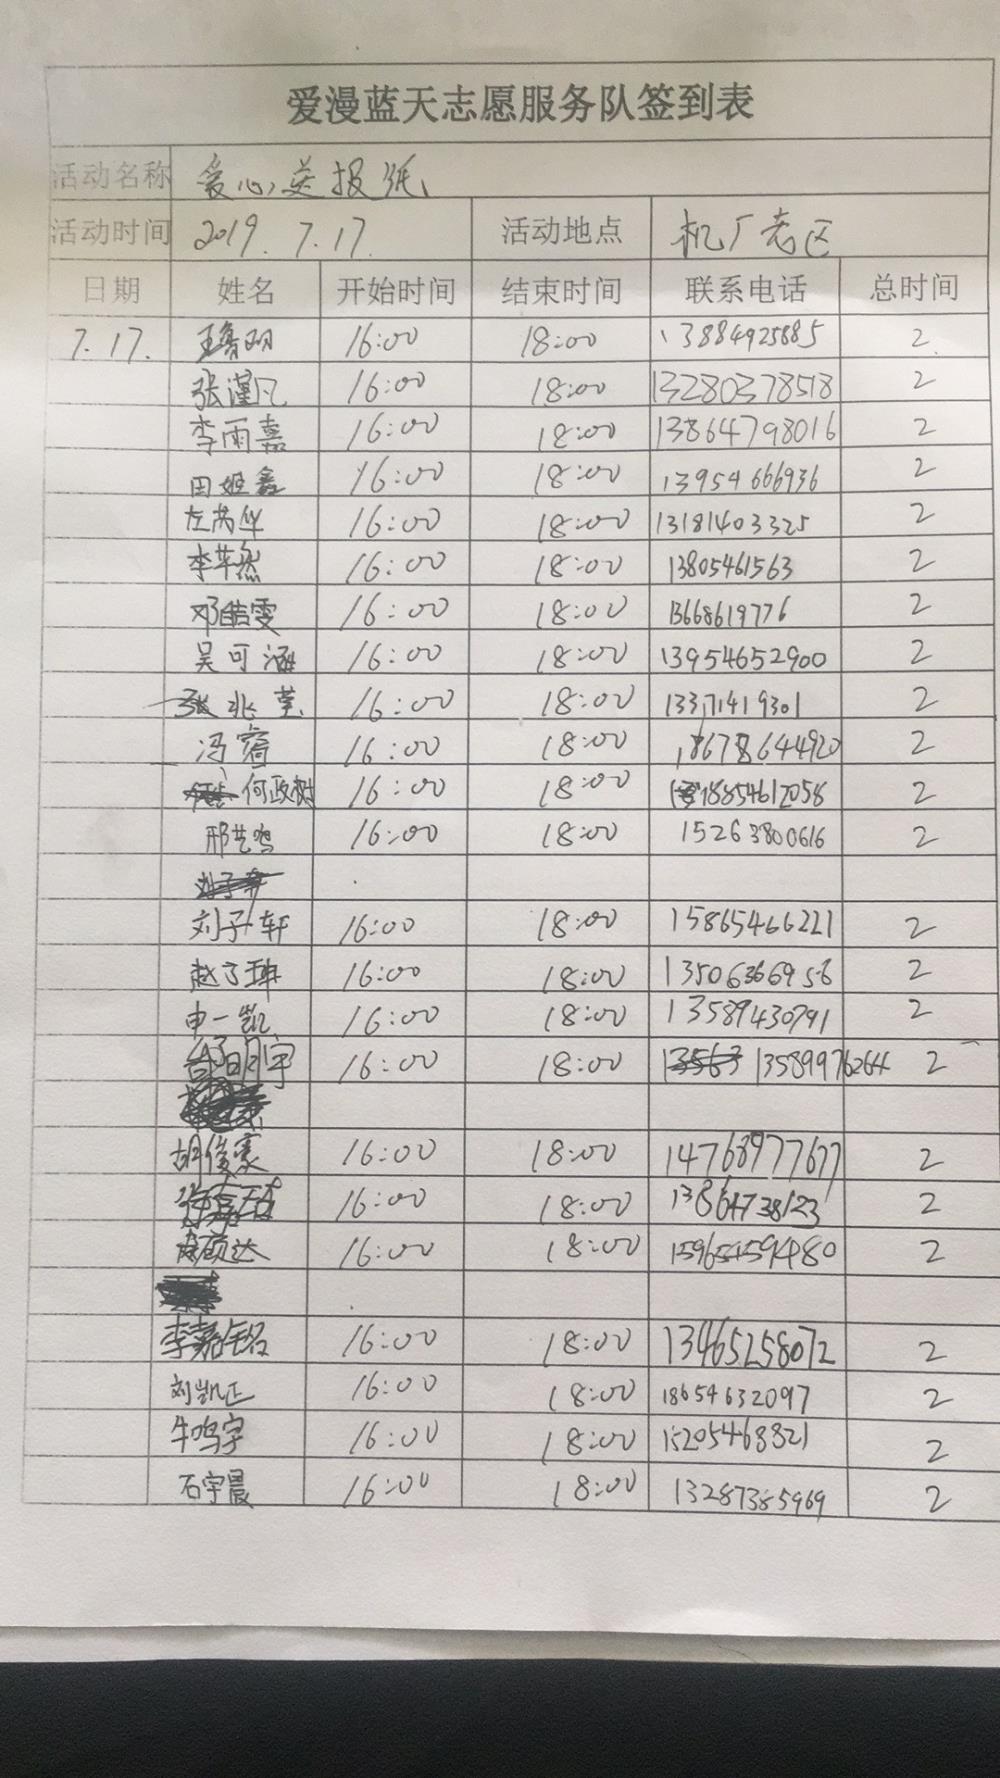 爱漫蓝天志愿服务队签到表
活动名称 爱心卖报纸
活动时间 2019.7.17. 活动地点 机厂老区
日期 姓名 开始时间 结束时间 联系电话 总时间
7.17. 王鲁明 16:00 18:00 13884925885 2
张瑾凡 16:00 18:00 13280378518 2
李雨嘉 16:00 18:00 13864798016 2
田姬鑫 16:00 18:00 13954666936 2
左芮华 16:00 18:00 13181403325 2
李芊然 16:00 18:00 13805461563 2
邓皓雯 16:00 18:00 13668619776 2
吴可涵 16:00 18:00 13954652900 2
张兆芸 16:00 18:00 13371419301 2
冯睿 16:00 18:00 18678644920 2
何政树 16:00 18:00 18854612058 2
邢艺鸣 16:00 18:00 15263800616 2
刘子轩 16:00 18:00 15865466221 2
赵子琳 16:00 18:00 13506366956 2
申一凯 16:00 18:00 13589430791 2
台明宇 16:00 18:00 13589976264 2
胡俊豪 16:00 18:00 14768977677 2
16:00 18:00 13864738123 2
硕达 16:00 18:00 15965459480 2
李嘉铭 16:00 18:00 13465258072 2
刘凯正 16:00 18:00 18654632097 2
牛鸣宇 16:00 18:00 15205468821 2
石宇晨 16:00 18:00 13287385969 2